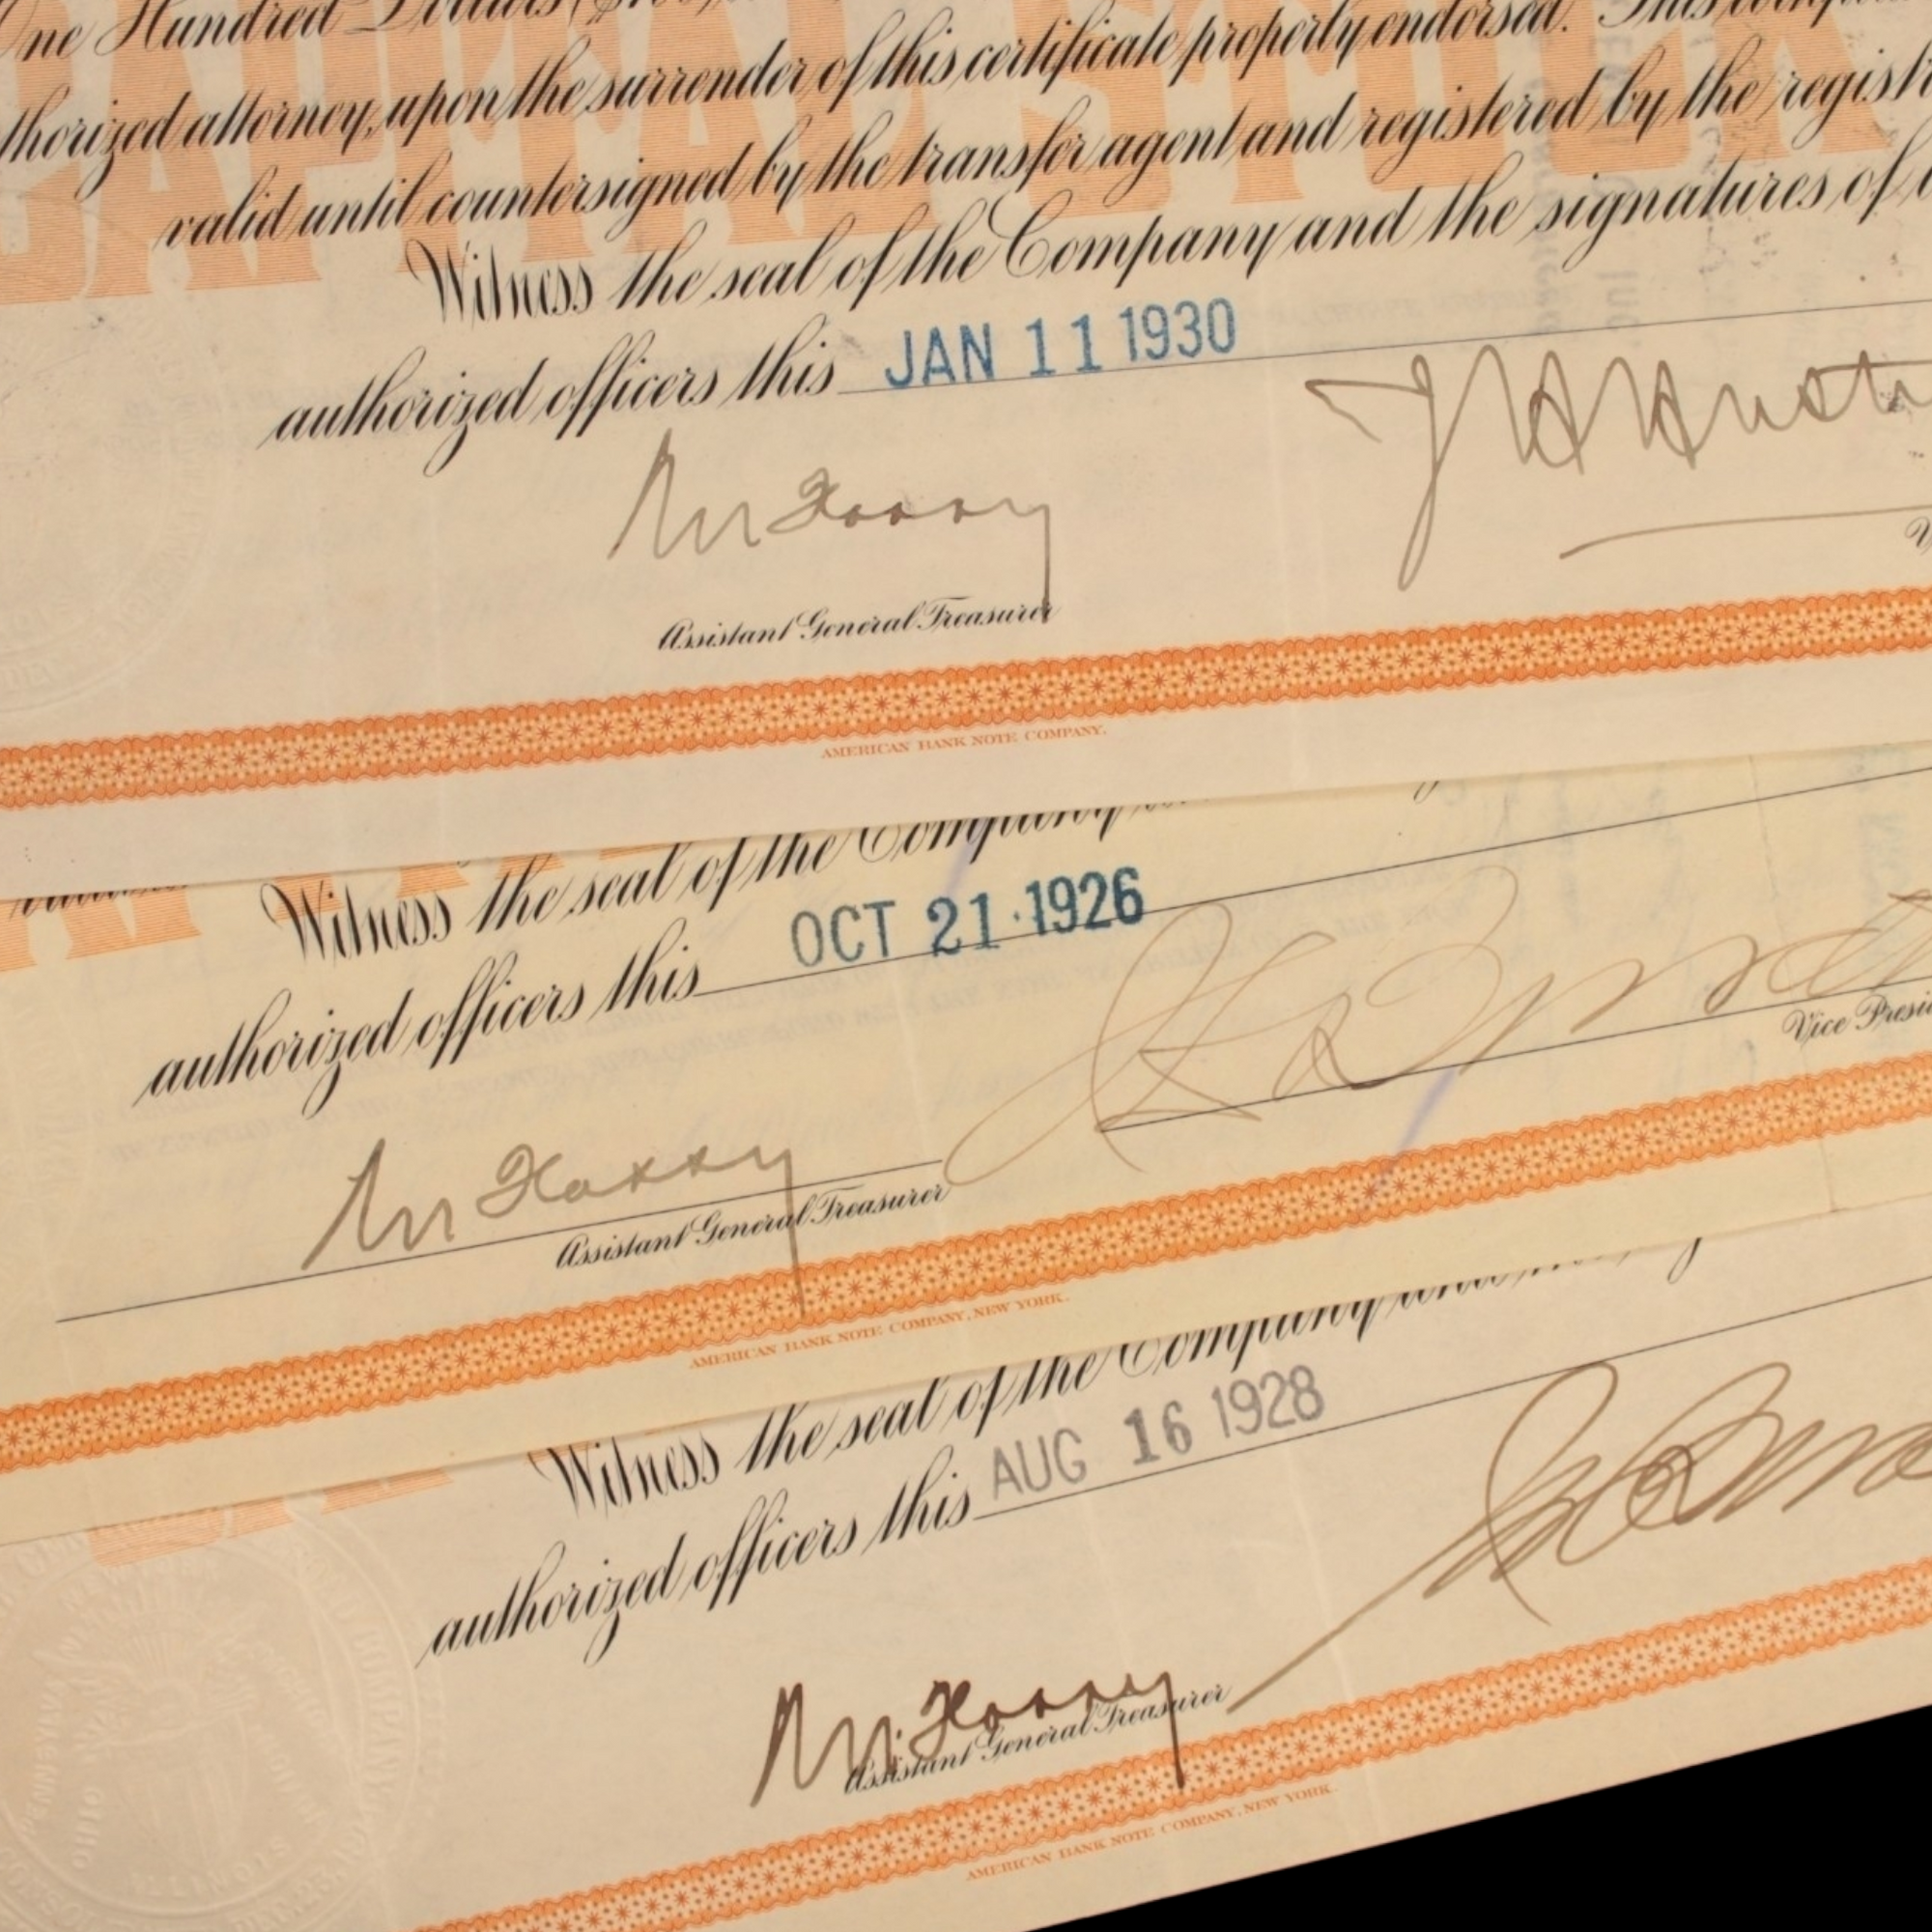 One Hundred Dollars
CAPITAL STOCK
thorized attorney, upon the surrender of this certificate properly endorsed. This
valid until countersigned by the transfer agent and registered by the
Witness the seal of the Company and the signatures of
authorized officers this JAN 11 1930
Assistant General Treasurer
AMERICAN BANK NOTE COMPANY.
Witness the seal of the Company
authorized officers this OCT 21 1926
Vice Presi
Assistant General Treasurer
AMERICAN BANK NOTE COMPANY, NEW YORK.
Witness the seal of the Company
authorized officers this AUG 16 1928
Assistant General Treasurer
OHIO
ILLINOIS
AMERICAN BANK NOTE COMPANY, NEW YORK.